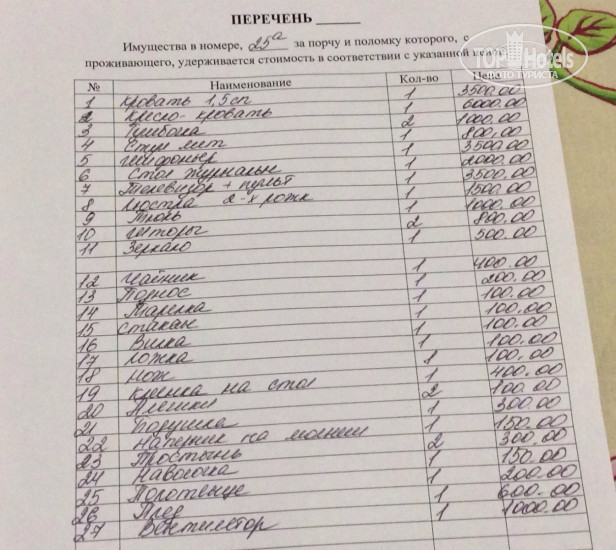 ПЕРЕЧЕНЬ
Имущества в номере, 25а за порчу и поломку которого, с
проживающего, удерживается стоимость в соответствии с указанной ценой
TOPHotels
№ Наименование Кол-во Цена
1 кровать 1,5сп 1 3500.00
2 Кресло-кровать 1 6000.00
3 Тумбочка 2 1000.00
4 Стул мяг 1 800.00
5 шифоньер 1 3500.00
6 Стол журнальн 1 2000.00
7 Телевизор + пульт 1 3500.00
8 люстра 2-х рожк 1 1500.00
9 Тюль 1 1000.00
10 шторы 2 800.00
11 Зеркало 1 500.00
12 Чайник 1 400.00
13 Поднос 1 200.00
14 Тарелка 1 100.00
15 стакан 1 100.00
16 Вилка 1 100.00
17 ложка 1 100.00
18 Нож 1 100.00
19 клеенка на стол 1 400.00
20 Плечики 2 100.00
21 подушка 1 300.00
22 Наперник на 150.00
23 Простынь 2 300.00
24 Наволочка 1 150.00
25 Полотенце 200.00
26 Плед 1 600.00
27 Вентилятор 1 1000.00